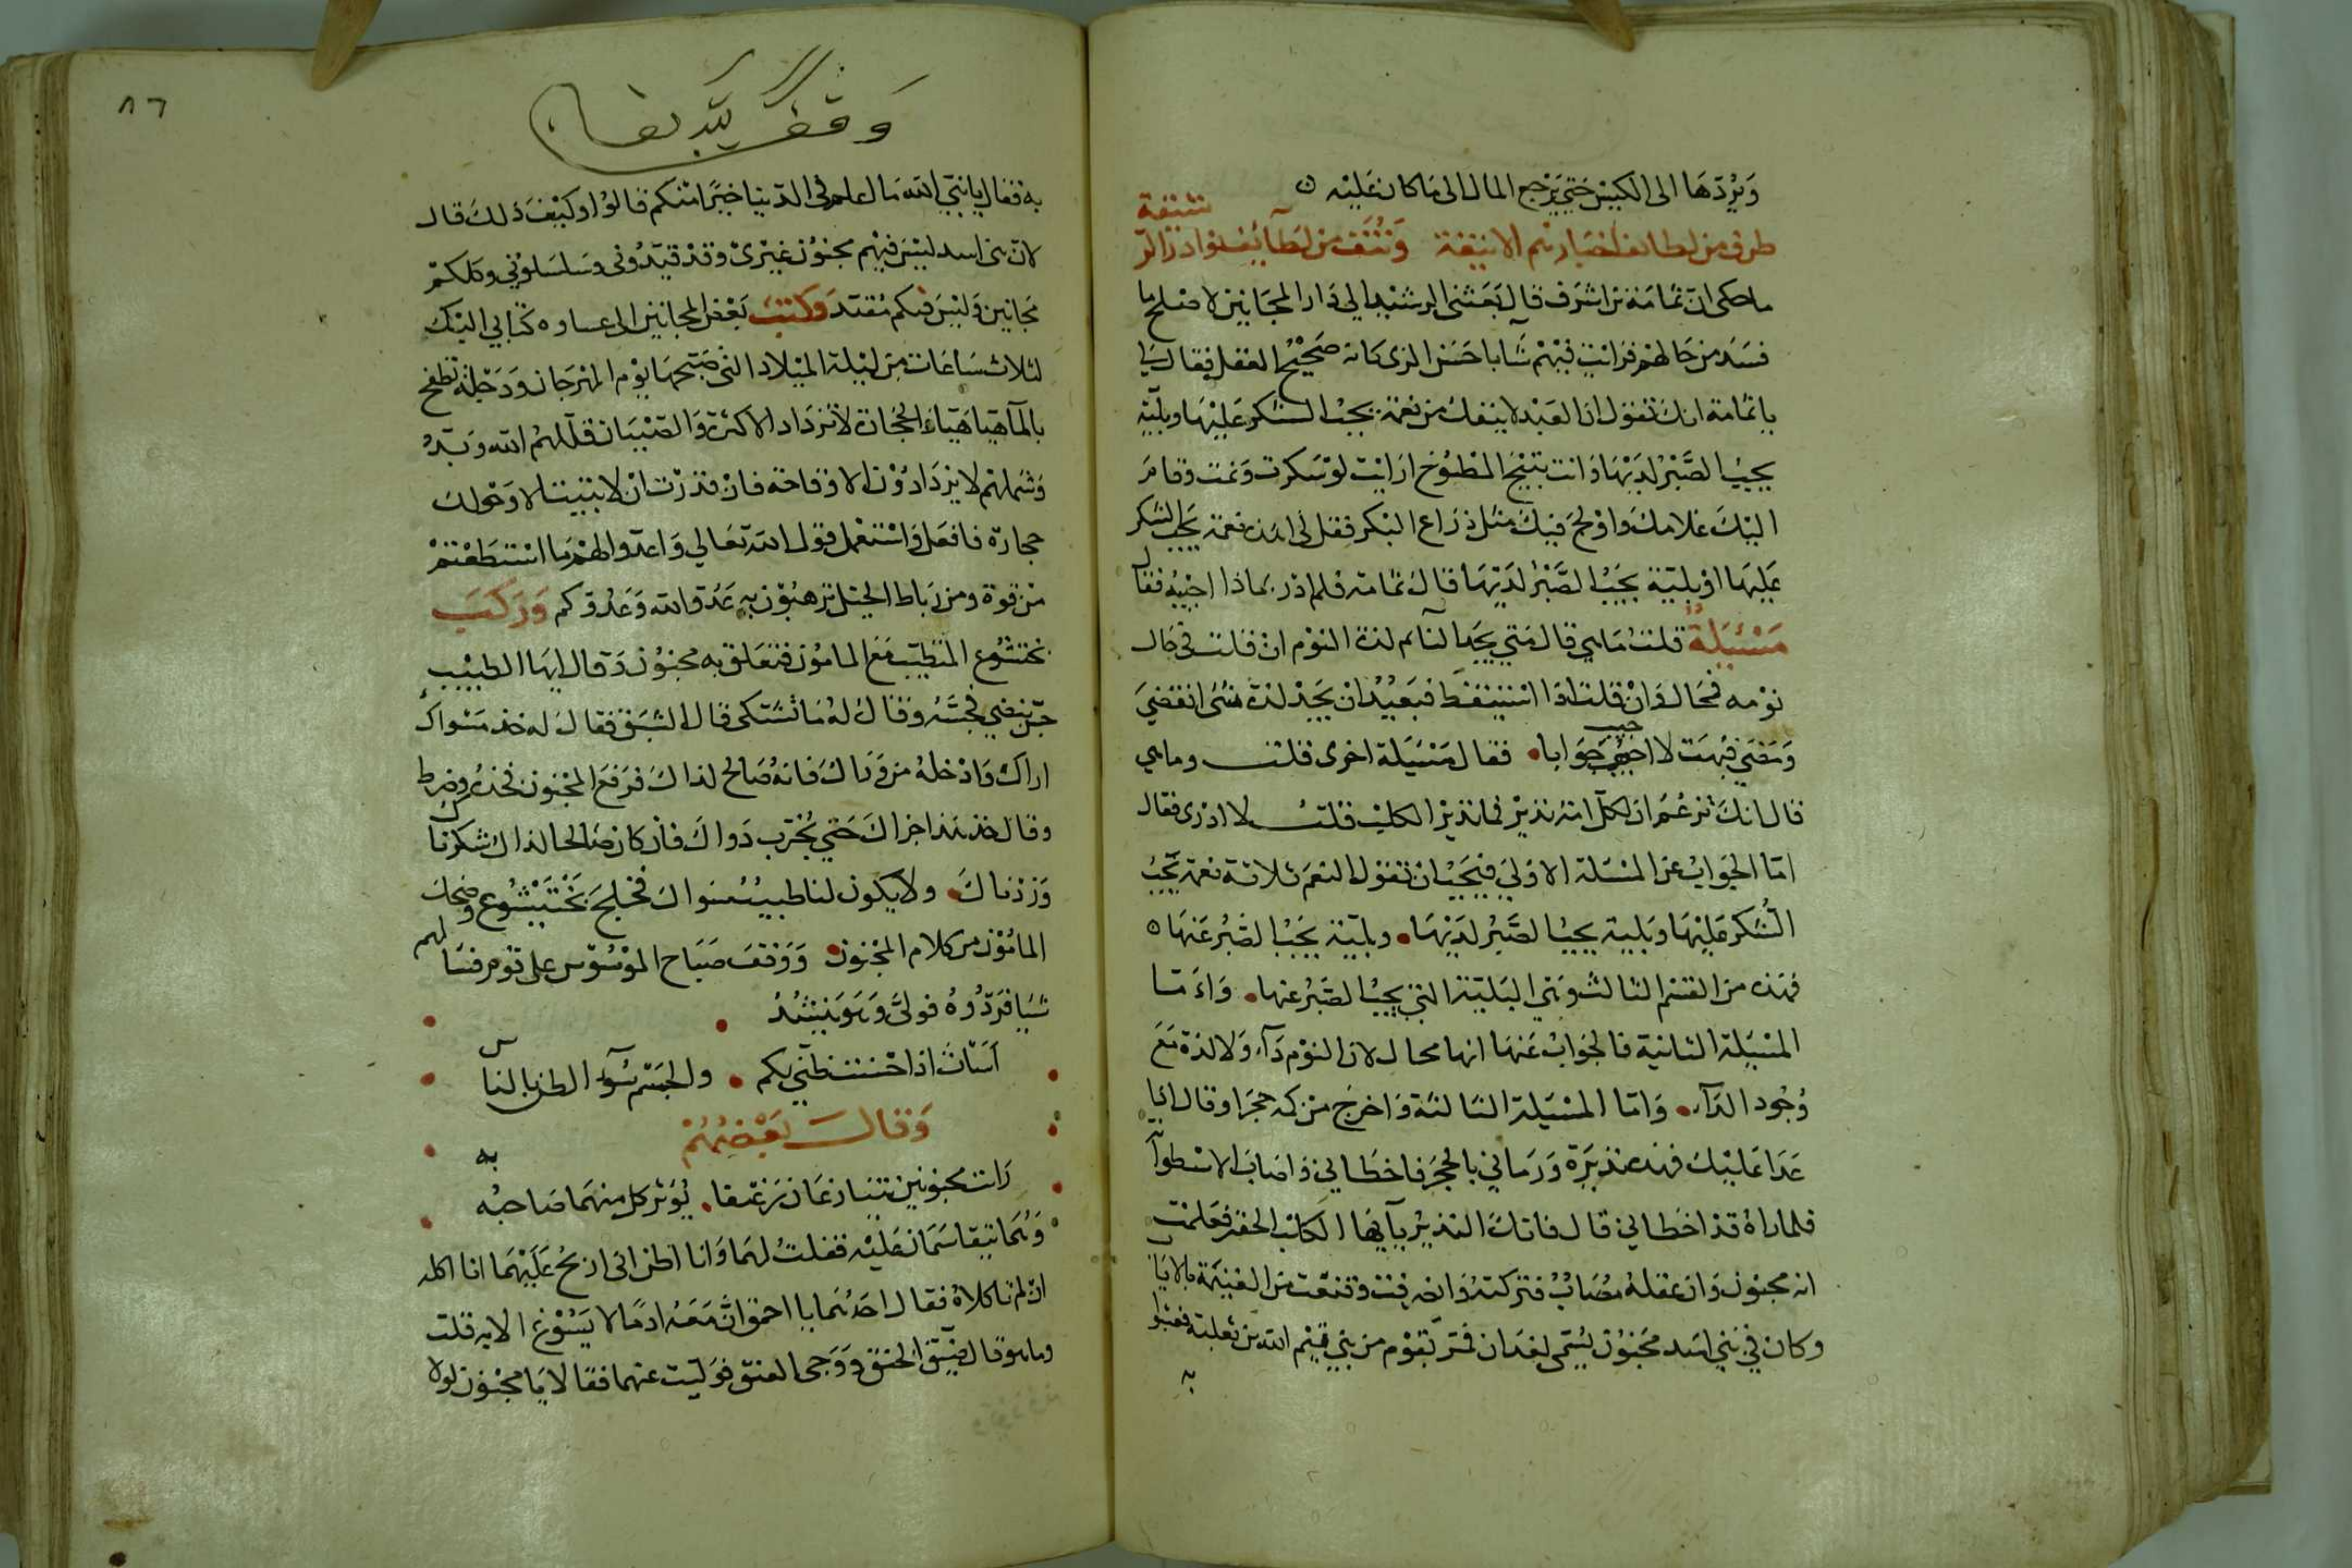 ويردها الى الكيس حتى يرجع المال الى ما كان عليه
طرف من لطائف اخبارهم الانيقة ونتف من لطائف نوادر
ما حكى ان ثمامة بن اشرف قال بعثني الرشيد الى دار المجانين لاصلح ما
فسد من حالهم فرايت فيهم شابا حسن الزى كانه صحيح العقل فقال لي
يا ثمامة انك تقول ان العبد لا ينفك من نعمة يجب الشكر عليها وبلية
يجب الصبر لديها وانت تبيح المطبوخ ارايت لو سكرت ونمت وقام
اليك غلامك واولج فيك مثل ذراع البكر فقل لي اهذه نعمة يجب الشكر
عليها او بلية يجب الصبر لديها قال ثمامة فلم ادر بماذا اجيبه فقال
مسئيلة قلت ما هي قال متى يجد النائم لذة النوم ان قلت في حال
نومه فمحال وان قلت اذا استيقظ فبعيد ان يجد لذة شئ انقضى
ومضى فبهت لا احير جوابا فقال مسئيلة اخرى قلت وما هي
قال انك تزعم ان لكل امة نذير فما نذير الكلاب قلت لا ادرى فقال
اما الجواب عن المسئلة الاولى فيجب ان تقول النعم ثلاثة نعمة يجب
الشكر عليها وبلية يجب الصبر لديها وبلية يجب الصبر عنها
فهذه من القسم الثالث وهي البلية التي يجب الصبر عنها واما
المسئيلة الثانية فالجواب عنها انها محال لان النوم داء ولا لذة مع
وجود الداء واما المسئيلة الثالثة واخرج من كمه حجرا وقال اذا
عدا عليك فهذه نذيره ورماني بالحجر فاخطاني واصاب الاسطوانة
فلما راه قد اخطاني قال فاتك النذير يا ايها الكلب الحقير فعلمت
انه مجنون وان عقله مصاب فتركته وانصرفت وقنعت من الغنيمة بالاياب
وكان في بني اسد مجنون يسمى لغدان فمر بقوم من بني تيم الله بن ثعلبة فعبثوا
به
٨٦
به فقال يا بني تيم الله ما اعلم في الدنيا خيرا منكم قالوا وكيف ذلك قال
لان بنى اسد ليس فيهم مجنون غيرى وقد قيدونى وسلسلوني وكلكم
مجانين وليس فيكم مقيد وكتب بعض المجانين الى كتابي اليك
لثلاث ساعات من ليلة الميلاد التي صبيحتها يوم المهرجان ودجلة تطفح
بالماء هيا هياء الحجارة لا تزداد الا كثرة والصبيان قللهم الله وبدد
وشملهم لا يزدادون الا وقاحة فان قدرت ان لا تبيت الا وحولك
حجارة فافعل واستعمل قول الله تعالى واعدوا لهم ما استطعتم
من قوة ومن رباط الخيل ترهبون به عدو الله وعدوكم وركب
بختيشوع المتطبب مع المامون فتعلق به مجنون وقال ايها الطبيب
جس نبضي فجسه وقال له ما تشتكى قال الشبق فقال له خذ مسواك
اراك وادخله من وراك فانه صالح لذاك فرفع المجنون فخذه وضرط
وقال خذ هذا جزاك حتى نجرب دواك فان كان صالحا لذاك شكرناك
وزدناك ولا يكون لنا طبيب سواك فخجل بختيشوع وضحك
المامون من كلام المجنون ووقف صباح الموسوس على قوم فسالهم
شيا فردوه فولى وهو ينشد
اسات اذ احسنت ظني بكم والحزم سوء الظن بالناس
وقال بعضهم
رايت مجنونين يتنازعان رغيفا يوثر كل منهما صاحبه به
وهما يتقاسمان عليه فقلت لهما وانا اظن انى اربح عليهما انا اكله
ان لم تاكلاه فقال احدهما يا احمق ان معه ادما لا يسوغ الا به قلت
وما هو قال ضيق الحنق ووجى العنق فوليت عنهما فقالا يا مجنون لولا